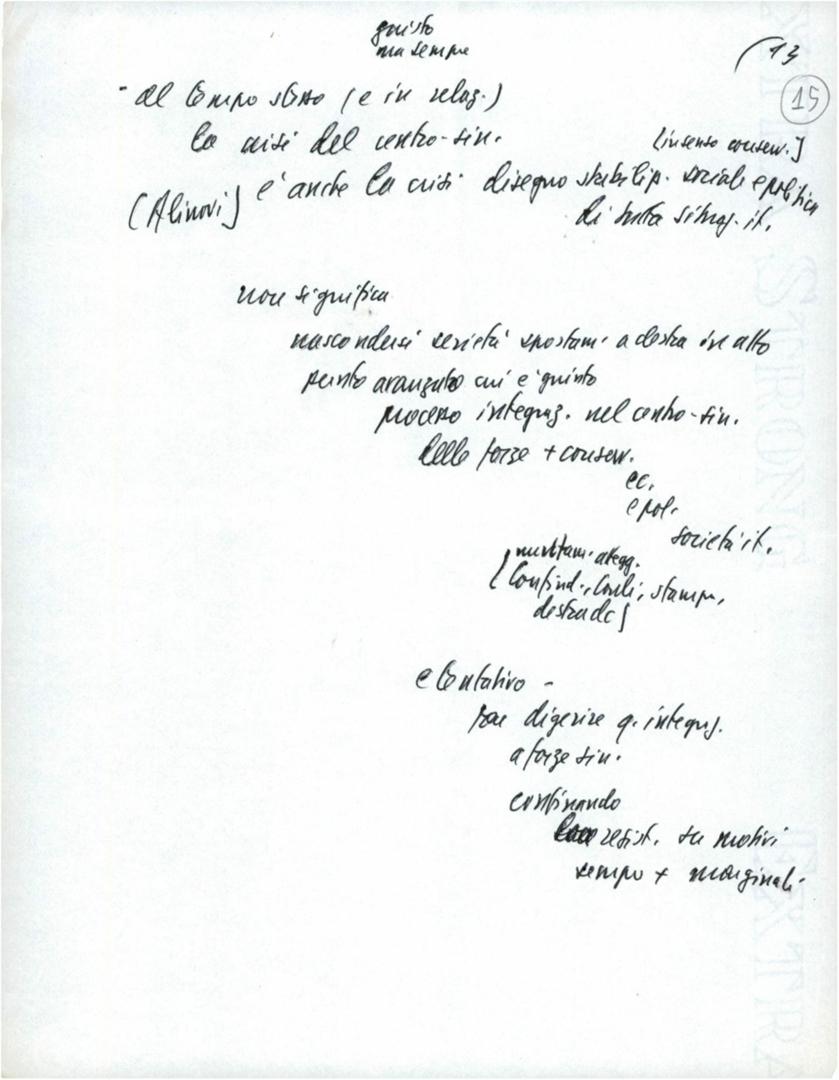 giusto
ma sempre
(13
15
- al tempo stesso (e in relaz.)
la crisi del centro-sin.
[in senso conserv.]
(Alinovi) e' anche la crisi disegno stabiliz. sociale e politica
di tutta situaz. it.
non significa
nascondersi serietà spostam. a destra in atto
punto avanzato cui e' giunto
processo integraz. nel centro-sin.
delle forze + conserv.
ec.
e pol.
società it.
mutam. attegg.
[Confind., stampa,
destra dc]
e tentativo -
far digerire q. integraz.
a forze sin.
confinando
resist. su motivi
sempre + marginali-